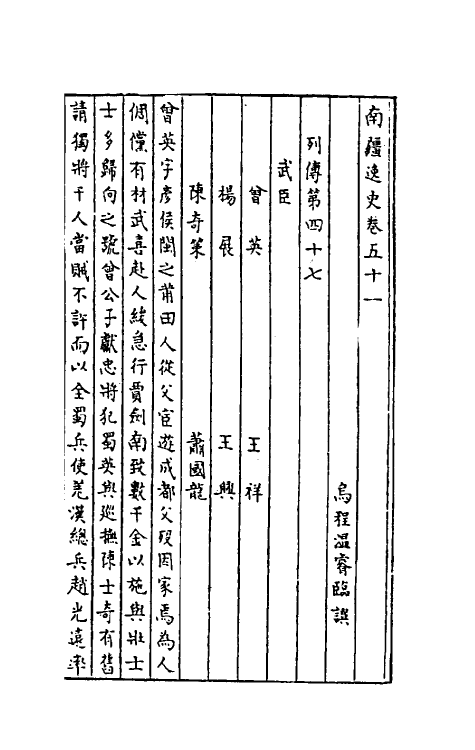 南疆逸史卷五十一
烏程温睿臨譔
列傳第四十七
武臣
曾英 王祥
楊展 王興
陳奇策 蕭國龍
曾英字彥侯閩之莆田人從父宦遊成都父歿因家焉為人
倜儻有材武喜赴人緩急行賈劍南致數千金以施與壯士
士多歸向之號曾公子獻忠將犯蜀英與巡撫陳士奇有舊
請獨將千人當賊不許而以全蜀兵使羌漢總兵趙光遠率